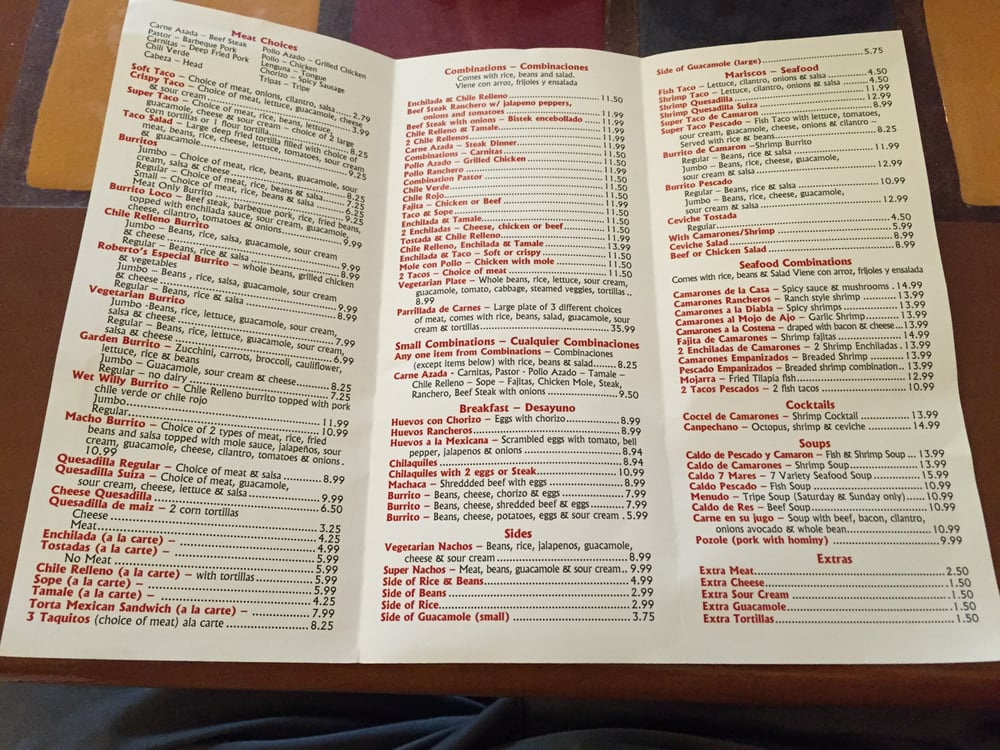 Meat Choices
Carne Asada – Beef Steak
Pastor – Barbeque Pork
Carnitas – Deep Fried Pork
Chili Verde
Cabeza – Head
Pollo Azado – Grilled Chicken
Pollo – Chicken
Lenguna – Tongue
Chorizo – Spicy Sausage
Tripas – Tripe
Soft Taco – Choice of meat, onions, cilantro, salsa 2.79
Crispy Taco – Choice of meat, lettuce, guacamole, cheese
& sour cream 3.99
Super Taco – Choice of meat, rice, beans, lettuce,
guacamole, cheese, sour cream – choice of 2 large
corn tortillas or 1 flour tortilla 8.25
Taco Salad – Large deep fried tortilla filled with choice of
meat, beans, rice, cheese, lettuce, tomatoes, sour cream
& guacamole 9.25
Burritos
Jumbo – Choice of meat, rice, beans, guacamole, sour
cream, salsa & cheese 8.25
Regular – Choice of meat, rice, beans & salsa 7.25
Small – Choice of meat, rice, beans & salsa 6.25
Meat Only Burrito 9.25
Burrito Loco – Beef steak, barbeque pork, rice, fried
topped with enchilada sauce, sour cream, guacamole,
cheese, cilantro, tomatoes & onions 9.99
Chile Relleno Burrito
Jumbo – Beans, rice, salsa, guacamole, sour cream
& cheese 9.99
Regular – Beans, rice & salsa 8.99
Roberto's Especial Burrito – whole beans, grilled chicken
& vegetables
Jumbo – Beans, rice, salsa, guacamole, sour cream
& cheese 9.99
Regular – Beans, rice & salsa 8.99
Vegetarian Burrito
Jumbo -Beans, rice, lettuce, guacamole, sour cream,
salsa & cheese 7.99
Regular – Beans, rice, lettuce, guacamole, sour cream,
salsa & cheese 6.99
Garden Burrito – Zucchini, carrots, broccoli, cauliflower,
lettuce, rice & beans
Jumbo – Guacamole, sour cream & cheese 8.25
Regular – no dairy 7.25
Wet Willy Burrito – Chile Relleno burrito topped with pork
chile verde or chile rojo
Jumbo 11.99
Regular 10.99
Macho Burrito – Choice of 2 types of meat, rice, fried
beans and salsa topped with mole sauce, jalapeños, sour
cream, guacamole, cheese, cilantro, tomatoes & onions.
10.99
Quesadilla Regular – Choice of meat & salsa 8.99
Quesadilla Suiza – Choice of meat, guacamole,
sour cream, cheese, lettuce & salsa 9.99
Cheese Quesadilla 6.50
Quesadilla de maiz – 2 corn tortillas
Cheese 3.25
Meat 4.25
Enchilada (a la carte) – 4.99
Tostadas (a la carte) – 5.99
No Meat 5.99
Chile Relleno (a la carte) – with tortillas 5.99
Sope (a la carte) – 5.99
Tamale (a la carte) – 4.25
Torta Mexican Sandwich (a la carte) – 7.99
3 Taquitos (choice of meat) ala carte 8.25
Combinations – Combinaciones
Comes with rice, beans and salad.
Viene con arroz, frijoles y ensalada
Enchilada & Chile Relleno 11.50
Beef Steak Ranchero w/ jalapeno peppers,
onions and tomatoes 11.99
Beef Steak with onions – Bistek encebollado 11.99
Chile Relleno & Tamale 11.99
2 Chile Rellenos 11.99
Carne Azada – Steak Dinner 11.99
Combinations – Carnitas 11.99
Pollo Azado – Grilled Chicken 11.50
Pollo Ranchero 11.99
Combination Pastor 11.50
Chile Verde 11.50
Chile Rojo 11.50
Fajita – Chicken or Beef 11.99
Taco & Sope 11.50
Enchilada & Tamale 11.50
2 Enchiladas – Cheese, chicken or beef 11.50
Tostada & Chile Relleno 11.99
Chile Relleno, Enchilada & Tamale 13.99
Enchilada & Taco – Soft or crispy 11.50
Mole con Pollo – Chicken with mole 11.50
2 Tacos – Choice of meat 11.50
Vegetarian Plate – Whole beans, rice, lettuce, sour cream,
guacamole, tomato, cabbage, steamed veggies, tortillas ..
8.99
Parrillada de Carnes – Large plate of 3 different choices
of meat, comes with rice, beans, salad, guacamole, sour
cream & tortillas 35.99
Small Combinations – Cualquier Combinaciones
Any one item from Combinations – Combinations
(except items below) with rice, beans & salad 8.25
Carne Azada - Carnitas, Pastor - Pollo Azado – Tamale –
Chile Relleno – Sope – Fajitas, Chicken Mole, Steak,
Ranchero, Beef Steak with onions 9.50
Breakfast – Desayuno
Huevos con Chorizo – Eggs with chorizo 8.99
Huevos Rancheros 8.99
Huevos a la Mexicana – Scrambled eggs with tomato, bell
pepper, jalapenos & onions 8.94
Chilaquiles 8.94
Chilaquiles with 2 eggs or Steak 10.99
Machaca – Shreddded beef with eggs 8.99
Burrito – Beans, cheese, chorizo & eggs 7.99
Burrito – Beans, cheese, shredded beef & eggs 7.99
Burrito – Beans, cheese, potatoes, eggs & sour cream .5.99
Sides
Vegetarian Nachos – Beans, rice, jalapenos, guacamole,
cheese & sour cream 8.99
Super Nachos – Meat, beans, guacamole & sour cream.. 9.99
Side of Rice & Beans 4.99
Side of Beans 2.99
Side of Rice 2.99
Side of Guacamole (small) 3.75
Side of Guacamole (large) 5.75
Mariscos – Seafood
Fish Taco – Lettuce, cilantro, onions & salsa 4.50
Shrimp Taco – Lettuce, cilantro, onions & salsa 4.50
Shrimp Quesadilla 11.99
Shrimp Quesadilla Suiza 12.99
Super Taco de Camaron 8.99
Super Taco Pescado – Fish Taco with lettuce, tomatoes,
sour cream, guacamole, cheese, onions & cilantro –
Served with rice & beans 8.25
Burrito de Camaron –Shrimp Burrito
Regular – Beans, rice & salsa 11.99
Jumbo – Beans, rice, cheese, guacamole,
sour cream & salsa 12.99
Burrito Pescado
Regular – Beans, rice & salsa 10.99
Jumbo – Beans, rice, cheese, guacamole,
sour cream & salsa 12.99
Ceviche Tostada
Regular 4.50
With Camarones/Shrimp 5.99
Ceviche Salad 8.99
Beef or Chicken Salad 8.99
Seafood Combinations
Comes with rice, beans & Salad Viene con arroz, frijoles y ensalada
Camarones de la Casa – Spicy sauce & mushrooms . 14.99
Camarones Rancheros – Ranch style shrimp 13.99
Camarones a la Diabla – Spicy shrimps 13.99
Camarones al Mojo de Ajo – Garlic Shrimp 13.99
Camarones a la Costena – draped with bacon & cheese...13.99
Fajita de Camarones – Shrimp fajitas 14.99
2 Enchiladas de Camarones – 2 Shrimp Enchiladas . 13.99
Camarones Empanizados – Breaded Shrimp 13.99
Pescado Empanizados – Breaded shrimp combination.. 13.99
Mojarra – Fried Tilapia fish 12.99
2 Tacos Pescados – 2 fish tacos 10.99
Cocktails
Coctel de Camarones – Shrimp Cocktail 13.99
Canpechano – Octopus, shrimp & ceviche 14.99
Soups
Caldo de Pescado y Camaron – Fish & Shrimp Soup ... 13.99
Caldo de Camarones – Shrimp Soup 13.99
Caldo 7 Mares – 7 Variety Seafood Soup 15.99
Caldo Pescado – Fish Soup 10.99
Menudo – Tripe Soup (Saturday & Sunday only) 10.99
Caldo de Res – Beef Soup 10.99
Carne en su jugo – Soup with beef, bacon, cilantro,
onions avocado & whole bean 10.99
Pozole (pork with hominy) 9.99
Extras
Extra Meat 2.50
Extra Cheese 1.50
Extra Sour Cream 1.50
Extra Guacamole 1.50
Extra Tortillas 1.50